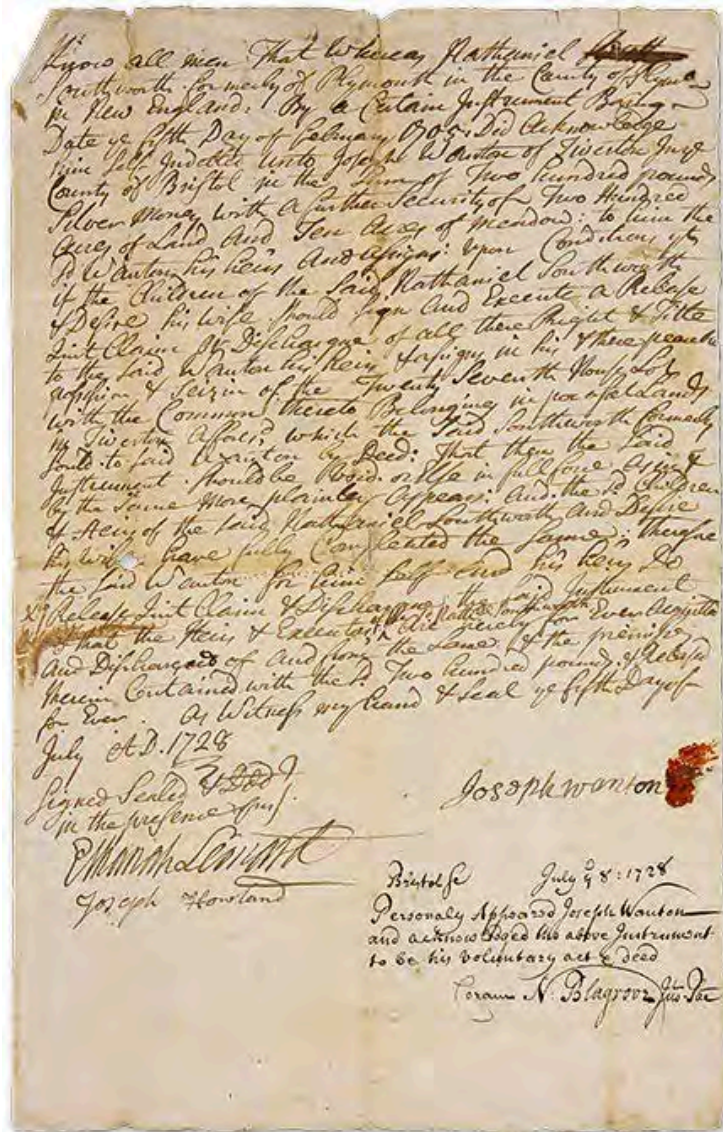 Know all men That Whereas Nathaniel
Southworth formerly of Plymouth in the County of Plymo
in New England: By a Certain Instrument Bring
Date ye fifth Day of February 1705: Did Acknowledge
him Self Indetted unto Joseph Wanton of Tiverton In ye
County of Bristol in the Sum of Two hundred pounds
Silver Money with a further Security of Two Hundred
Acres of Land And Ten Acres of meadow: to him the
sd Wanton his heirs And assigns: upon Conditions yt
if the Children of the Said Nathaniel Southworth
& Desire his wife Should Sign And Execute a Release
Quit Claim & Discharge of all there Right & Title
to the Said Wanton his heirs & assigns in his & there peacable
possession & Seizin of the Twenty Seventh Lot
with the Common thereto Belonging in Land
in Tiverton afforesd which the Said Southworth formerly
Sould to Said Wanton by Deed: That then the Said
Instrument Should be Void or Else in full force as in &
by the Same More plainley Appears: And the sd Children
& Heirs of the Said Nathaniel Southworth And Desire
his wife have fully Compleated the Same; therefore
the Said Wanton for him Self And his heirs Do
Release Quit Claim & Discharge the said Instrument
& that the Heirs & Executors of the sd Nath: Southworth are hereby for Ever Acquitted
And Discharged of and from the Same & the premises
therein Contained with the sd Two hundred pounds & Released
for Ever. As Witness my hand & Seal ye fifth Day of
July A.D. 1728
Signed Sealed & Dld
in the presence of us
Joseph Wanton
Elkanah Leonard
Joseph Howland
Bristol Sc July ye 8: 1728
Personaly Appeared Joseph Wanton
and acknowledged the above Instrument
to be his voluntary act & deed
Coram N. Blagrove Jus. Pac